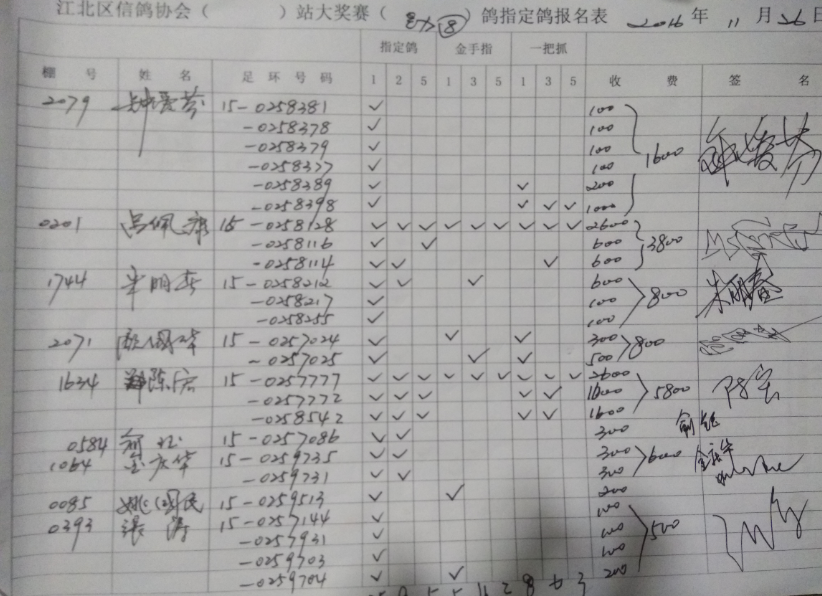 江北区信鸽协会（ ）站大奖赛（ ⑧）鸽指定鸽报名表 2016年 11月 26日
指定鸽 金手指 一把抓
棚号 姓名 足环号码 1 2 5 1 3 5 1 3 5 收费 签名
2079 15-0258381 ✓ 100
-0258378 ✓ 100
-0258379 ✓ 100
-0258377 ✓ 100 1600
-0258389 ✓ ✓ 200
-0258398 ✓ ✓ ✓ ✓ 1000
0201 吕佩 15-0258128 ✓ ✓ ✓ ✓ ✓ ✓ ✓ ✓ ✓ 2600
-0258116 ✓ ✓ 600 3800
-0258114 ✓ ✓ ✓ 600
1744 朱明春 15-0258212 ✓ ✓ ✓ 600 朱明春
-0258217 ✓ 100 800
-0258255 ✓ 100
2071 15-0257024 ✓ ✓ ✓ 300 800
-0257025 ✓ ✓ ✓ 500
1634 陈宏 15-0257777 ✓ ✓ ✓ ✓ ✓ ✓ ✓ ✓ ✓ 2600
-0257772 ✓ ✓ ✓ ✓ ✓ 1600 5800 陈宏
-0258542 ✓ ✓ ✓ ✓ ✓ 1600
0584 15-0257086 ✓ ✓ 300
1064 金庆华 15-0259735 ✓ ✓ 300 600 金庆华
-0259731 ✓ ✓ 300
0085 姚国民 15-0259513 ✓ ✓ 200
0393 张涛 15-0257144 ✓ 100
-0257931 ✓ 100 500
-0259703 ✓ 100
-0259704 ✓ ✓ 200